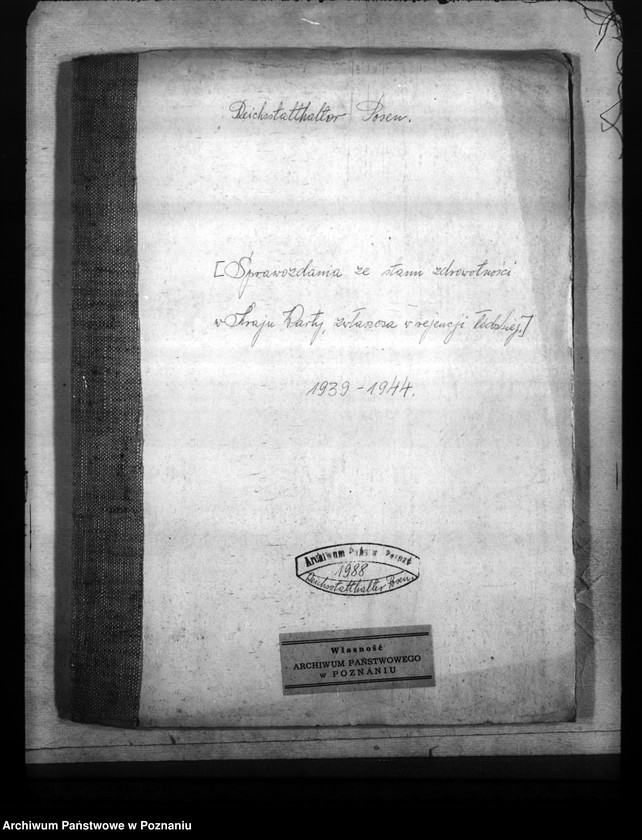 Reichsstatthalter Posen.
[Sprawozdania ze stanu zdrowotności
w Kraju Warty, zwłaszcza w rejencji łódzkiej.]
1939-1944.
Archiwum Państw Poznań
1988
Reichsstatthalter Posen.
Własność
ARCHIWUM PAŃSTWOWEGO
w POZNANIU
Archiwum Państwowe w Poznaniu